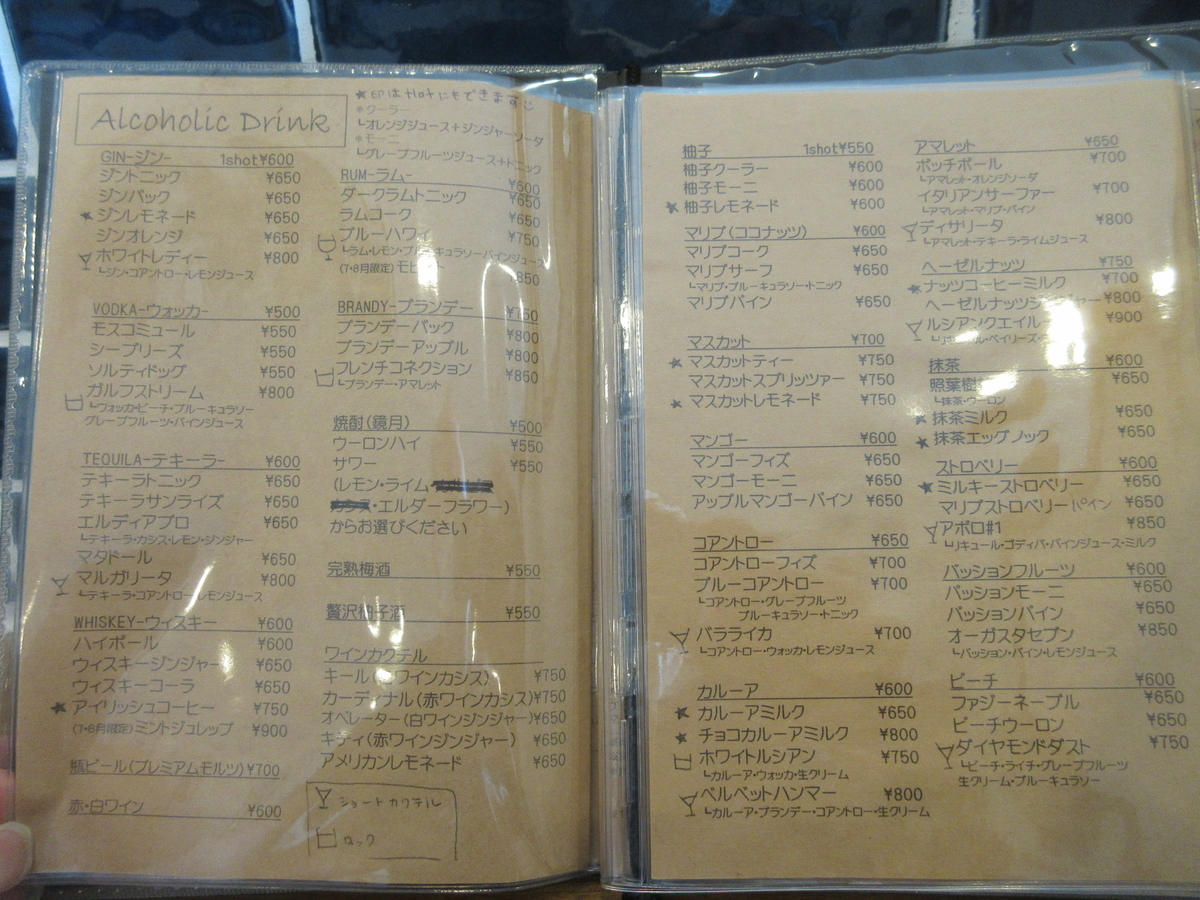 Alcoholic Drink
GIN-ジン- 1shot¥600
ジントニック ¥650
ジンバック ¥650
★ジンレモネード ¥650
ジンオレンジ ¥650
ホワイトレディー ¥800
┗ジン・コアントロー・レモンジュース
VODKA-ウォッカ- ¥500
モスコミュール ¥550
シーブリーズ ¥550
ソルティドッグ ¥550
ガルフストリーム ¥800
┗ウォッカ・ピーチ・ブルーキュラソー
グレープフルーツ・パインジュース
TEQUILA-テキーラ- ¥600
テキーラトニック ¥650
テキーラサンライズ ¥650
エルディアブロ ¥650
┗テキーラ・カシス・レモン・ジンジャー
マタドール ¥650
マルガリータ ¥800
┗テキーラ・コアントロー・レモンジュース
WHISKEY-ウィスキー ¥600
ハイボール ¥600
ウィスキージンジャー ¥650
ウィスキーコーラ ¥650
★アイリッシュコーヒー ¥750
(7・8月限定)ミントジュレップ ¥900
瓶ビール(プレミアムモルツ)¥700
赤・白ワイン ¥600
★EPはHotにもできます
*クーラー
┗オレンジジュース+ジンジャーソーダ
*モーニ
┗グレープフルーツジュース+トニック
RUM-ラム- ¥600
ダークラムトニック ¥650
ラムコーク ¥650
ブルーハワイ ¥750
┗ラム・レモン・ブルーキュラソーパインジュース
(7・8月限定)モヒ ¥850
BRANDY-ブランデー ¥750
ブランデーバック ¥800
ブランデーアップル ¥800
フレンチコネクション ¥850
┗ブランデー・アマレット
焼酎(鏡月) ¥500
ウーロンハイ ¥550
サワー ¥550
(レモン・ライム
・エルダーフラワー)
からお選びください
完熟梅酒 ¥550
贅沢柚子酒 ¥550
ワインカクテル
キール(白ワインカシス) ¥750
カーディナル(赤ワインカシス)¥750
オペレーター(白ワインジンジャー)¥650
キティ(赤ワインジンジャー) ¥650
アメリカンレモネード ¥650
ショートカクテル
ロック
柚子 1shot¥550
柚子クーラー ¥600
柚子モーニ ¥600
★柚子レモネード ¥600
マリブ(ココナッツ) ¥600
マリブコーク ¥650
マリブサーフ ¥650
┗マリブ・ブルーキュラソー・トニック
マリブパイン ¥650
マスカット ¥700
★マスカットティー ¥750
マスカットスプリッツァー ¥750
★マスカットレモネード ¥750
マンゴー ¥600
マンゴーフィズ ¥650
マンゴーモーニ ¥650
アップルマンゴーパイン ¥650
コアントロー ¥650
コアントローフィズ ¥700
ブルーコアントロー ¥700
┗コアントロー・グレープフルーツ
ブルーキュラソー・トニック
バラライカ ¥700
┗コアントロー・ウォッカ・レモンジュース
カルーア ¥600
★カルーアミルク ¥650
★チョコカルーアミルク ¥800
ホワイトルシアン ¥750
┗カルーア・ウォッカ・生クリーム
ベルベットハンマー ¥800
┗カルーア・ブランデー・コアントロー・生クリーム
アマレット ¥650
ボッチボール ¥700
┗アマレット・オレンジソーダ
イタリアンサーファー ¥700
┗アマレット・マリブ・パイン
ディサリータ ¥800
┗アマレット・テキーラ・ライムジュース
ヘーゼルナッツ ¥750
★ナッツコーヒーミルク ¥700
ヘーゼルナッツジンジャー ¥800
ルシアンクエイル ¥900
抹茶 ¥600
照葉樹 ¥650
┗抹茶・ウーロン
★抹茶ミルク ¥650
★抹茶エッグノック ¥650
ストロベリー ¥600
★ミルキーストロベリー ¥650
マリブストロベリーパイン ¥650
アポロ#1 ¥850
┗リキュール・ゴディバ・パインジュース・ミルク
パッションフルーツ ¥600
パッションモーニ ¥650
パッションパイン ¥650
オーガスタセブン ¥850
┗パッション・パイン・レモンジュース
ピーチ ¥600
ファジーネーブル ¥650
ピーチウーロン ¥650
ダイヤモンドダスト ¥750
┗ピーチ・ライチ・グレープフルーツ
生クリーム・ブルーキュラソー